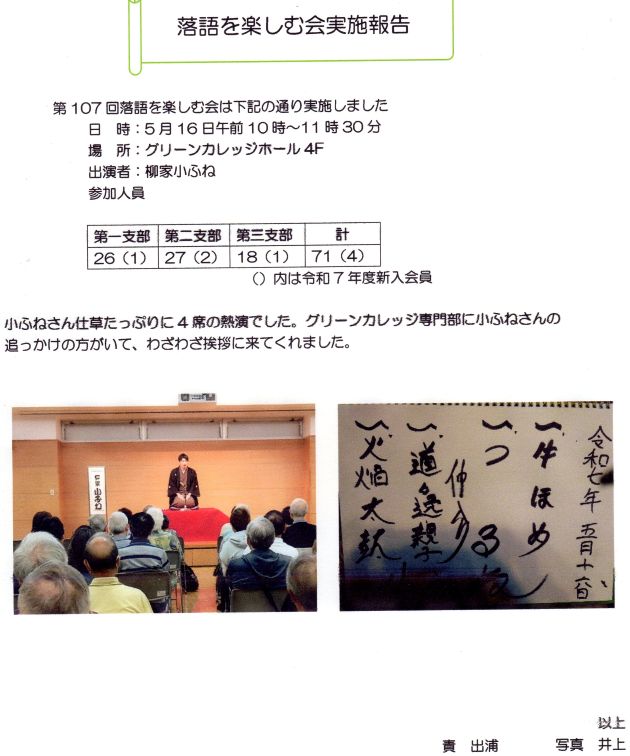 落語を楽しむ会実施報告
第107回落語を楽しむ会は下記の通り実施しました
日　時：5月16日午前10時～11時30分
場　所：グリーンカレッジホール4F
出演者：柳家小ふね
参加人員
第一支部 第二支部 第三支部 計
26（1） 27（2） 18（1） 71（4）
（）内は令和7年度新入会員
小ふねさん仕草たっぷりに4席の熱演でした。グリーンカレッジ専門部に小ふねさんの
追っかけの方がいて、わざわざ挨拶に来てくれました。
小ふね
令和七年 五月十六日
一、牛ほめ
一、つる
仲入り
一、火焔太鼓
以上
責　出浦　　写真　井上